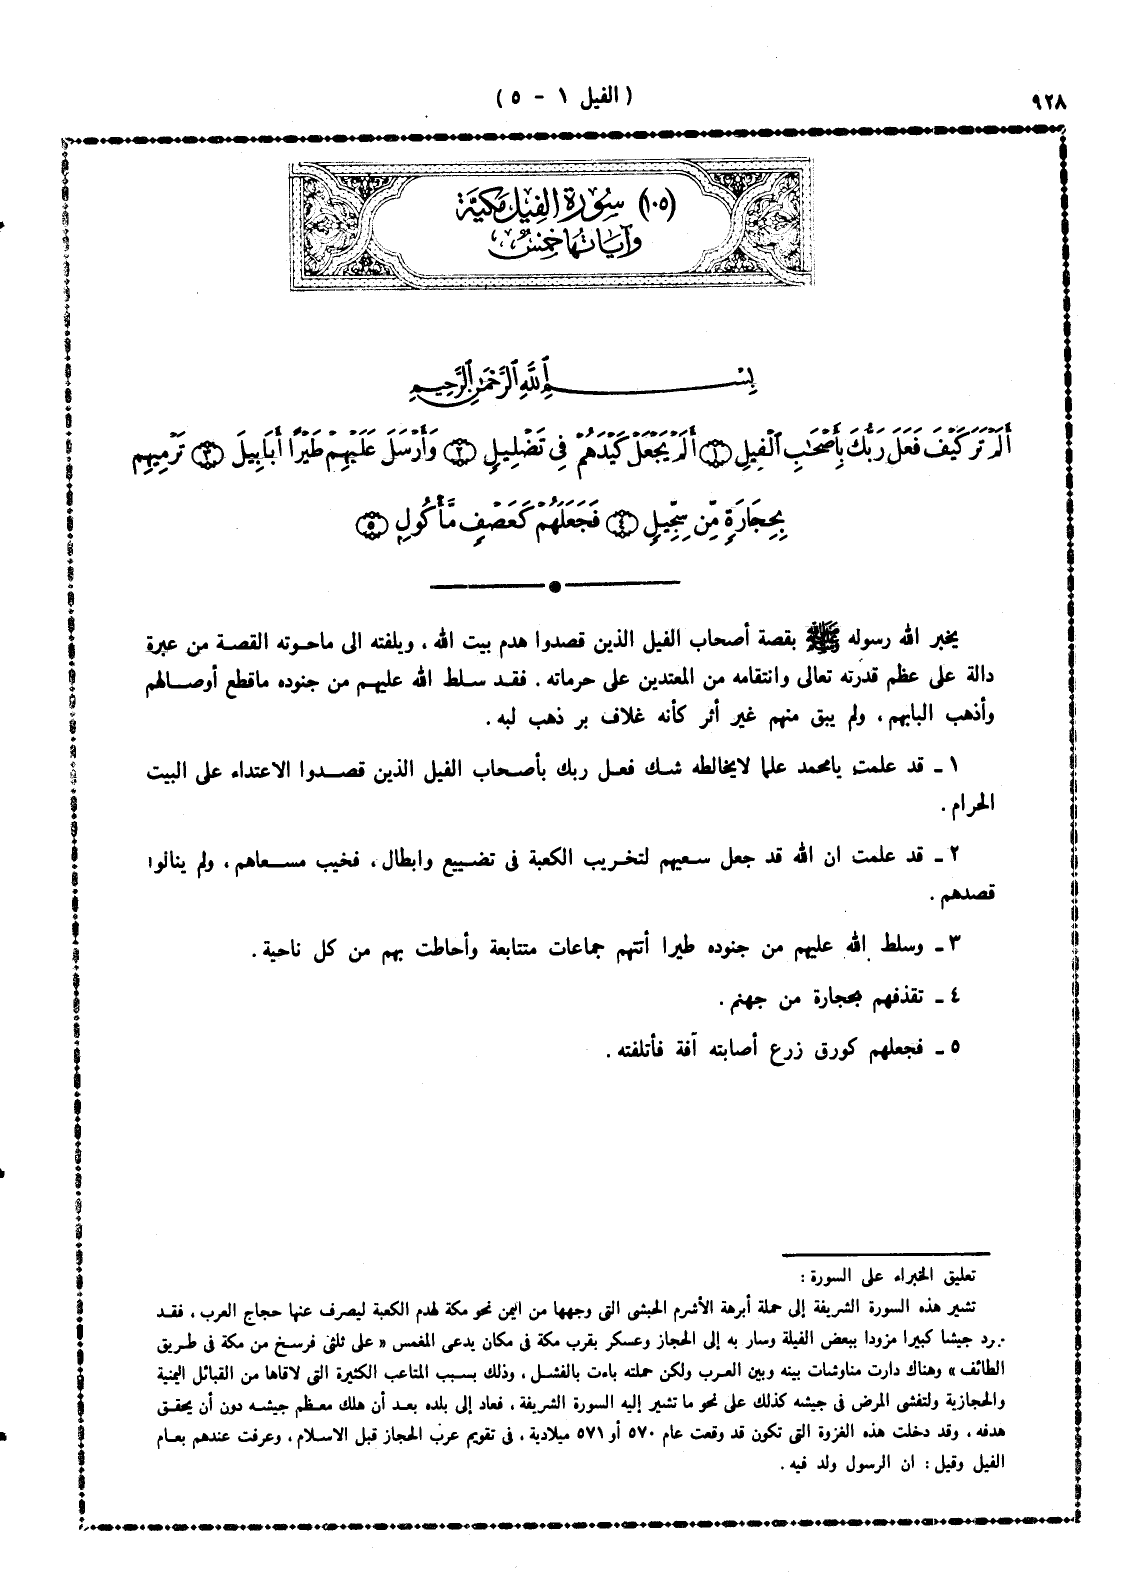 ٩٢٨
( الفيل ١ - ٥ )
(١٠٥) سُورَة الفِيل مَكيَّة
وَآيَاتُهَا خَمْسٌ
بِسْمِ ٱللَّهِ ٱلرَّحْمَٰنِ ٱلرَّحِيمِ
أَلَمْ تَرَ كَيْفَ فَعَلَ رَبُّكَ بِأَصْحَٰبِ ٱلْفِيلِ ١ أَلَمْ يَجْعَلْ كَيْدَهُمْ فِى تَضْلِيلٍ ٢ وَأَرْسَلَ عَلَيْهِمْ طَيْرًا أَبَابِيلَ ٣ تَرْمِيهِم
بِحِجَارَةٍ مِّن سِجِّيلٍ ٤ فَجَعَلَهُمْ كَعَصْفٍ مَّأْكُولٍ ٥
يخبر الله رسوله ﷺ بقصة أصحاب الفيل الذين قصدوا هدم بيت الله ، ويلفته الى ماحوته القصة من عبرة
دالة على عظم قدرته تعالى وانتقامه من المعتدين على حرماته . فقد سلط الله عليهم من جنوده ماقطع أوصالهم
وأذهب البابهم ، ولم يبق منهم غير أثر كأنه غلاف بر ذهب لبه .
١ ـ قد علمت يامحمد علما لايخالطه شك فعل ربك بأصحاب الفيل الذين قصدوا الاعتداء على البيت
الحرام .
٢ ـ قد علمت ان الله قد جعل سعيهم لتخريب الكعبة فى تضييع وابطال ، فخيب مسعاهم ، ولم ينالوا
قصدهم .
٣ ـ وسلط الله عليهم من جنوده طيرا أتتهم جماعات متتابعة وأحاطت بهم من كل ناحية .
٤ ـ تقذفهم بحجارة من جهنم .
٥ ـ فجعلهم كورق زرع أصابته آفة فأتلفته .
تعليق الخبراء على السورة :
تشير هذه السورة الشريفة إلى حملة أبرهة الأشرم الحبشى التى وجهها من اليمن نحو مكة لهدم الكعبة ليصرف عنها حجاج العرب ، فقد
جرد جيشا كبيرا مزودا ببعض الفيلة وسار به إلى الحجاز وعسكر بقرب مكة فى مكان يدعى المغمس « على ثلثى فرسخ من مكة فى طريق
الطائف » وهناك دارت مناوشات بينه وبين العرب ولكن حملته باءت بالفشل ، وذلك بسبب المتاعب الكثيرة التى لاقاها من القبائل اليمنية
والحجازية ولتفشى المرض فى جيشه كذلك على نحو ما تشير إليه السورة الشريفة ، فعاد إلى بلده بعد أن هلك معظم جيشه دون أن يحقق
هدفه ، وقد دخلت هذه الغزوة التى تكون قد وقعت عام ٥٧٠ أو ٥٧١ ميلادية ، فى تقويم عرب الحجاز قبل الاسلام ، وعرفت عندهم بعام
الفيل وقيل : ان الرسول ولد فيه .